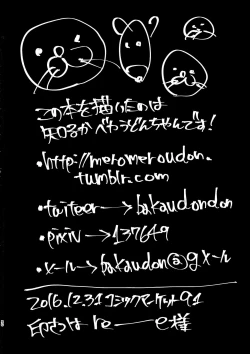 この本を描いたのは
ベらうどんちゃんです!
・http://meromeroudon.
tumblr.com
・twiteer→bakaudondon
・pixiv→137649
・メール→bakaudon@gメール
2016.12.31 コミックマーケット91
印刷は re——e様